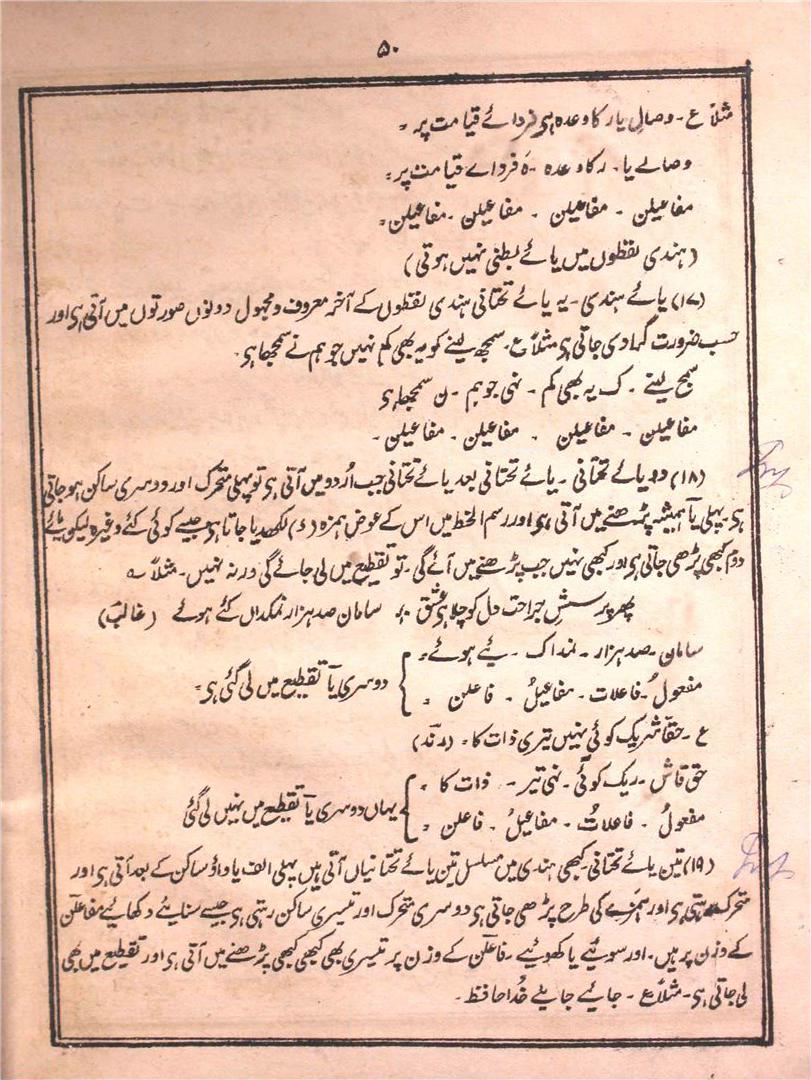 ۵۰
مثلاً ع۔ وصالِ یار کا وعدہ ہی فردائے قیامت پر ۔
وصالے یا۔ رکاوعدہ ۔ہَ فرداے قیامت پر ۔
مفاعیلن ۔ مفاعیلن ۔ مفاعیلن ۔ مفاعیلن ۔
(ہندی لفظوں میں یائے بطنی نہیں ہوتی)
(۱۷) یائے ہندی ۔ یہ یائے تحتانی ہندی لفظوں کے آخر معروف و مجہول دونوں صورتوں میں آتی ہی اور
حسب ضرورت گرا دی جاتی ہی مثلاً ع۔ سمجھ لینے کو یہ بھی کم نہیں جو ہم نے سمجھا ہی۔
سمج لینے ۔ ک یہ بھی کم ۔ نہی جو ہم ۔ ن سمجھا ہی
مفاعیلن ۔ مفاعیلن ۔ مفاعیلن ۔ مفاعیلن ۔
(۱۸) دو یائے تحتانی ۔ یائے تحتانی بعد یائے تحتانی جب اُردو میں آتی ہی تو پہلی متحرک اور دوسری ساکن ہو جاتی
ہی۔ پہلی یآ ہمیشہ پڑھنے میں آتی ہی اور رسم الخط میں اس کے عوض ہمزہ (ء) لکھدیا جاتا ہی جیسے کوئی کئے وغیرہ لیکن یائے
دوم کبھی پڑھی جاتی ہی اور کبھی نہیں جب پڑھنے میں آئے گی ۔ تو تقطیع میں لی جائے گی ورنہ نہیں ۔ مثلاً ؎
پھر پرسشِ جراحت دل کو چلا ہی عشق ؛ سامان صد ہزار نمکداں کئے ہوئے (غالبؔ)
سامان ۔ صد ہزار ۔ نمداک ۔ یٔے ہوئے ۔
مفعولُ ۔ فاعلات ۔ مفاعیلُ ۔ فاعلن ۔ } دوسری یآ تقطیع میں لی گئی ہی۔
ع ۔ حقّا شریک کوئی نہیں تیری ذات کا ۔ (رندؔ)
حق قاش ۔ ریک کوئی ۔ نہی تیر ۔ ذات کا ۔
مفعولُ ۔ فاعلاتُ ۔ مفاعیلُ ۔ فاعلن ۔ } یہاں دوسری یآ تقطیع میں نہیں لی گئی
(۱۹) تین یائے تحتانی ۔ کبھی ہندی میں مسلسل تین یائے تحتانیاں آتی ہیں پہلی الف یا واؤ ساکن کے بعد آتی ہی اور
متحرک ہوتی ہی اور ہمزے کی طرح پڑھی جاتی ہی دوسری متحرک اور تیسری ساکن رہتی ہی جیسے سنایئے دکھایئے مفاعلن
کے وزن پر ہیں ۔ اور سویئے یا کھوئیے ۔ فاعلن کے وزن پر تیسری بھی کبھی کبھی پڑھنے میں آتی ہی اور تقطیع میں بھی
لی جاتی ہی۔ مثلاً ع ۔ جایئے جایئے خُدا حافظ ۔